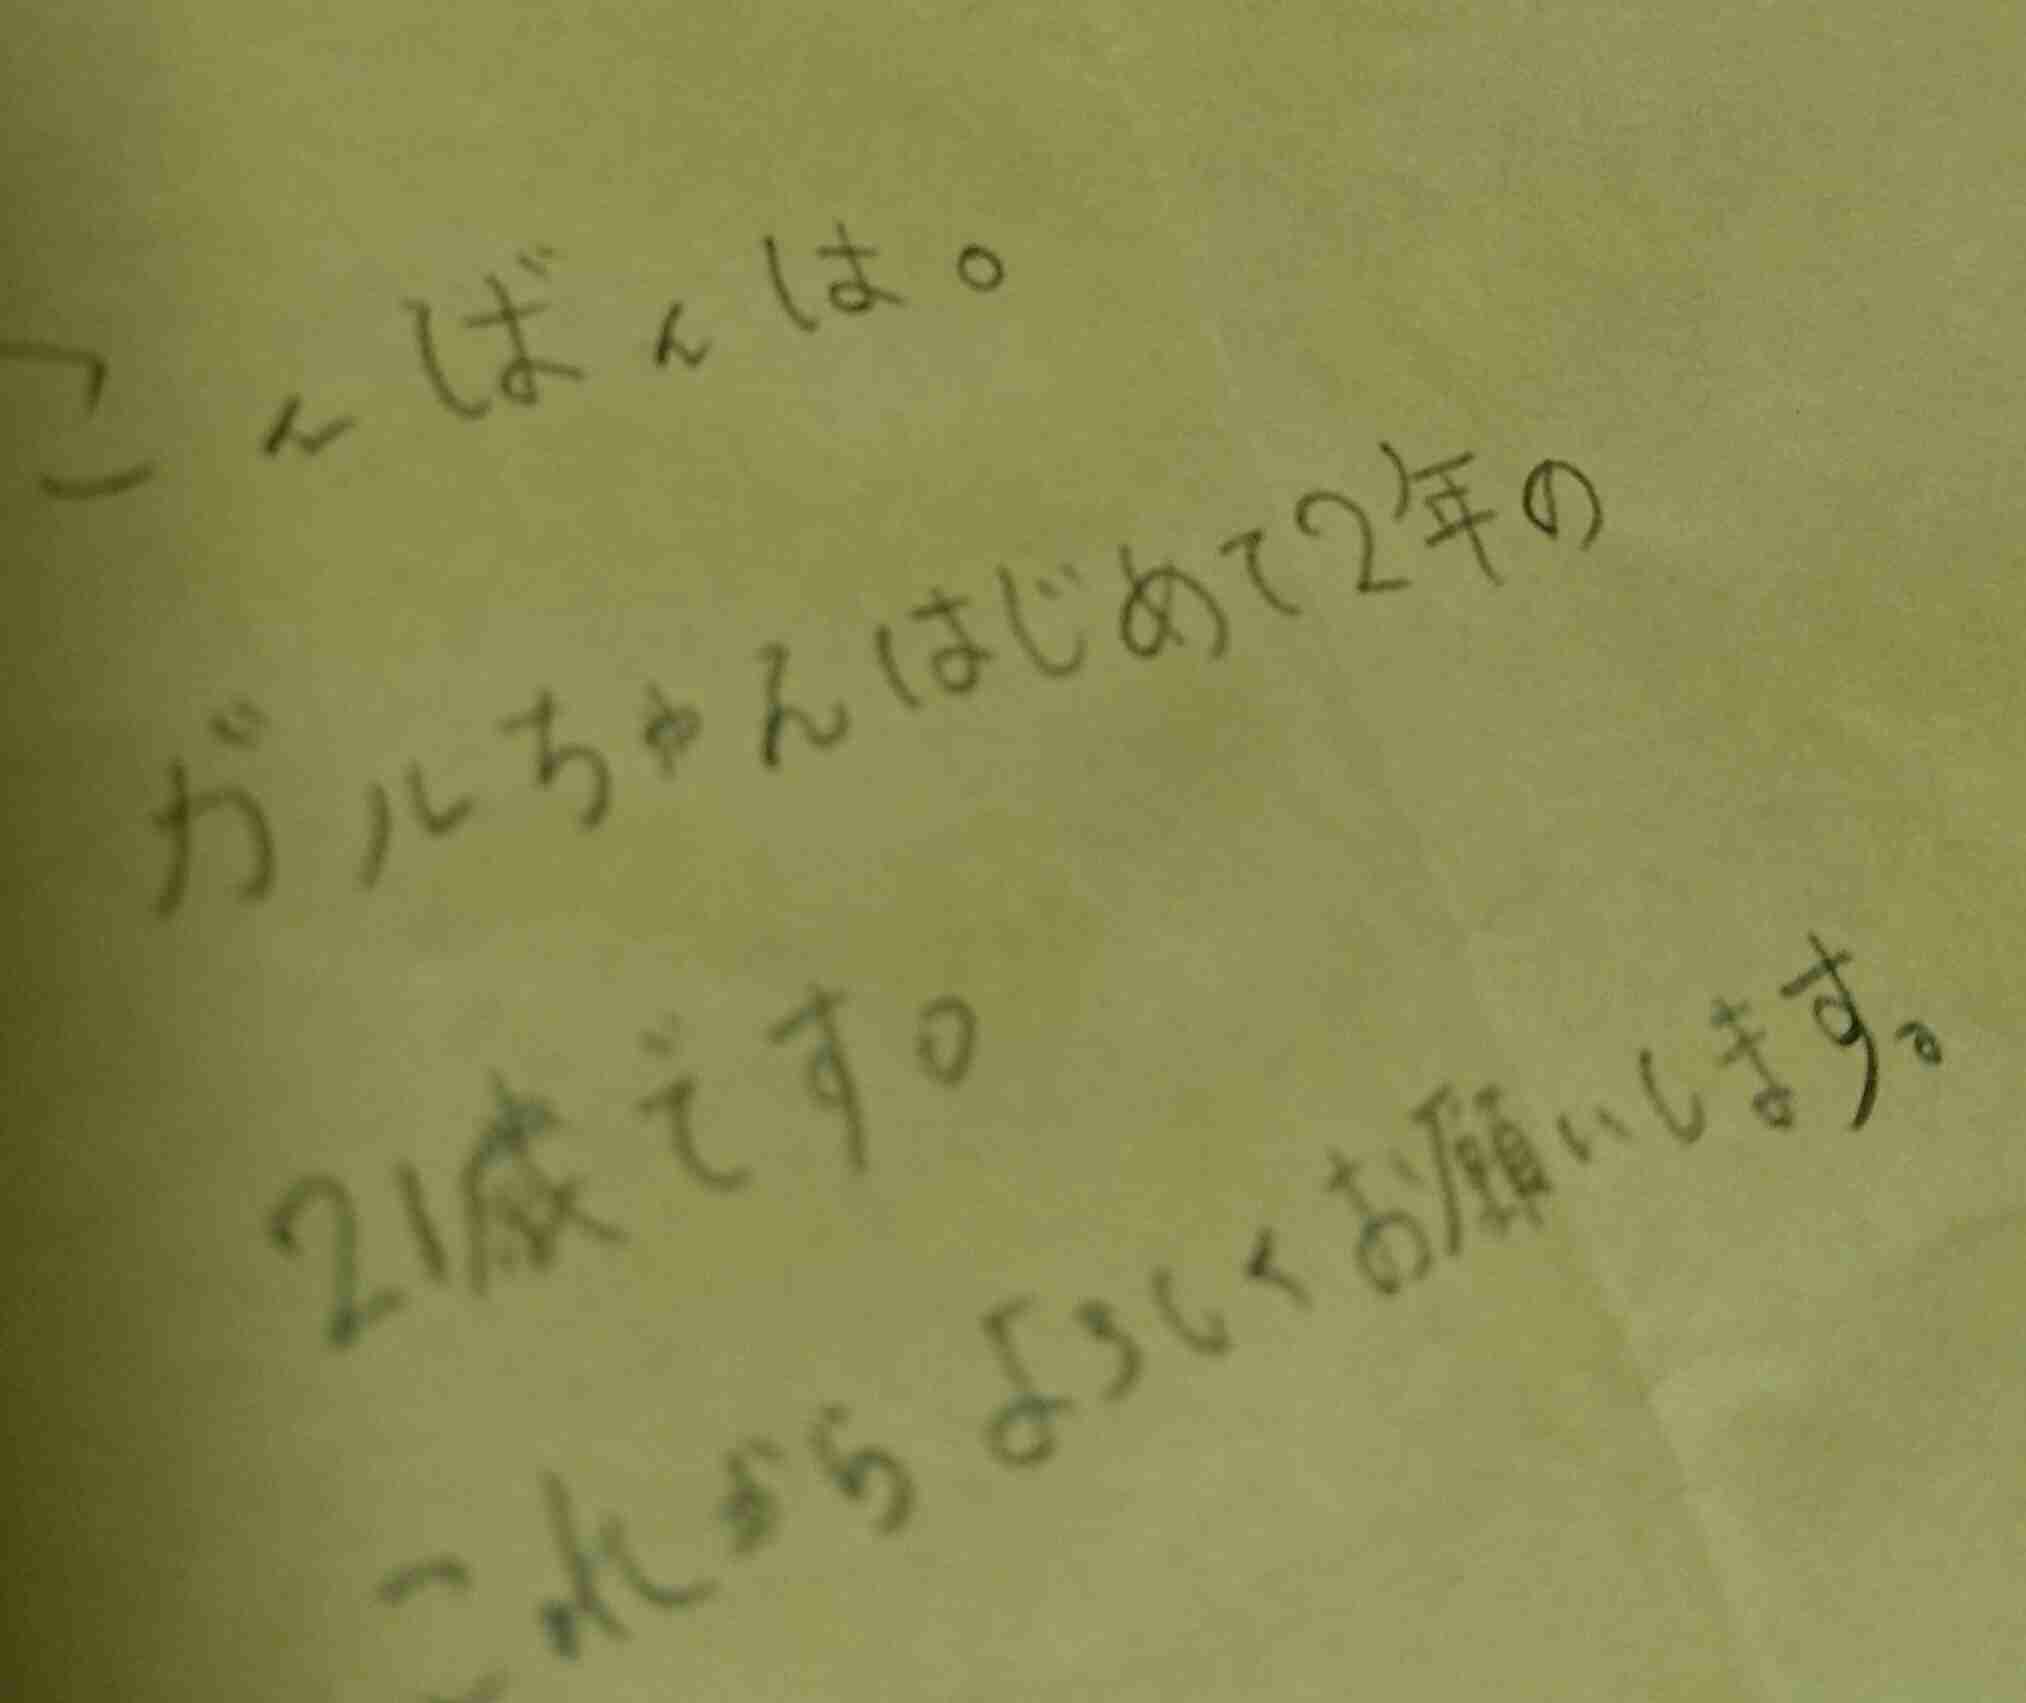 こんばんは。
ガルちゃんはじめて2年の
21歳です。
これからよろしくお願いします。